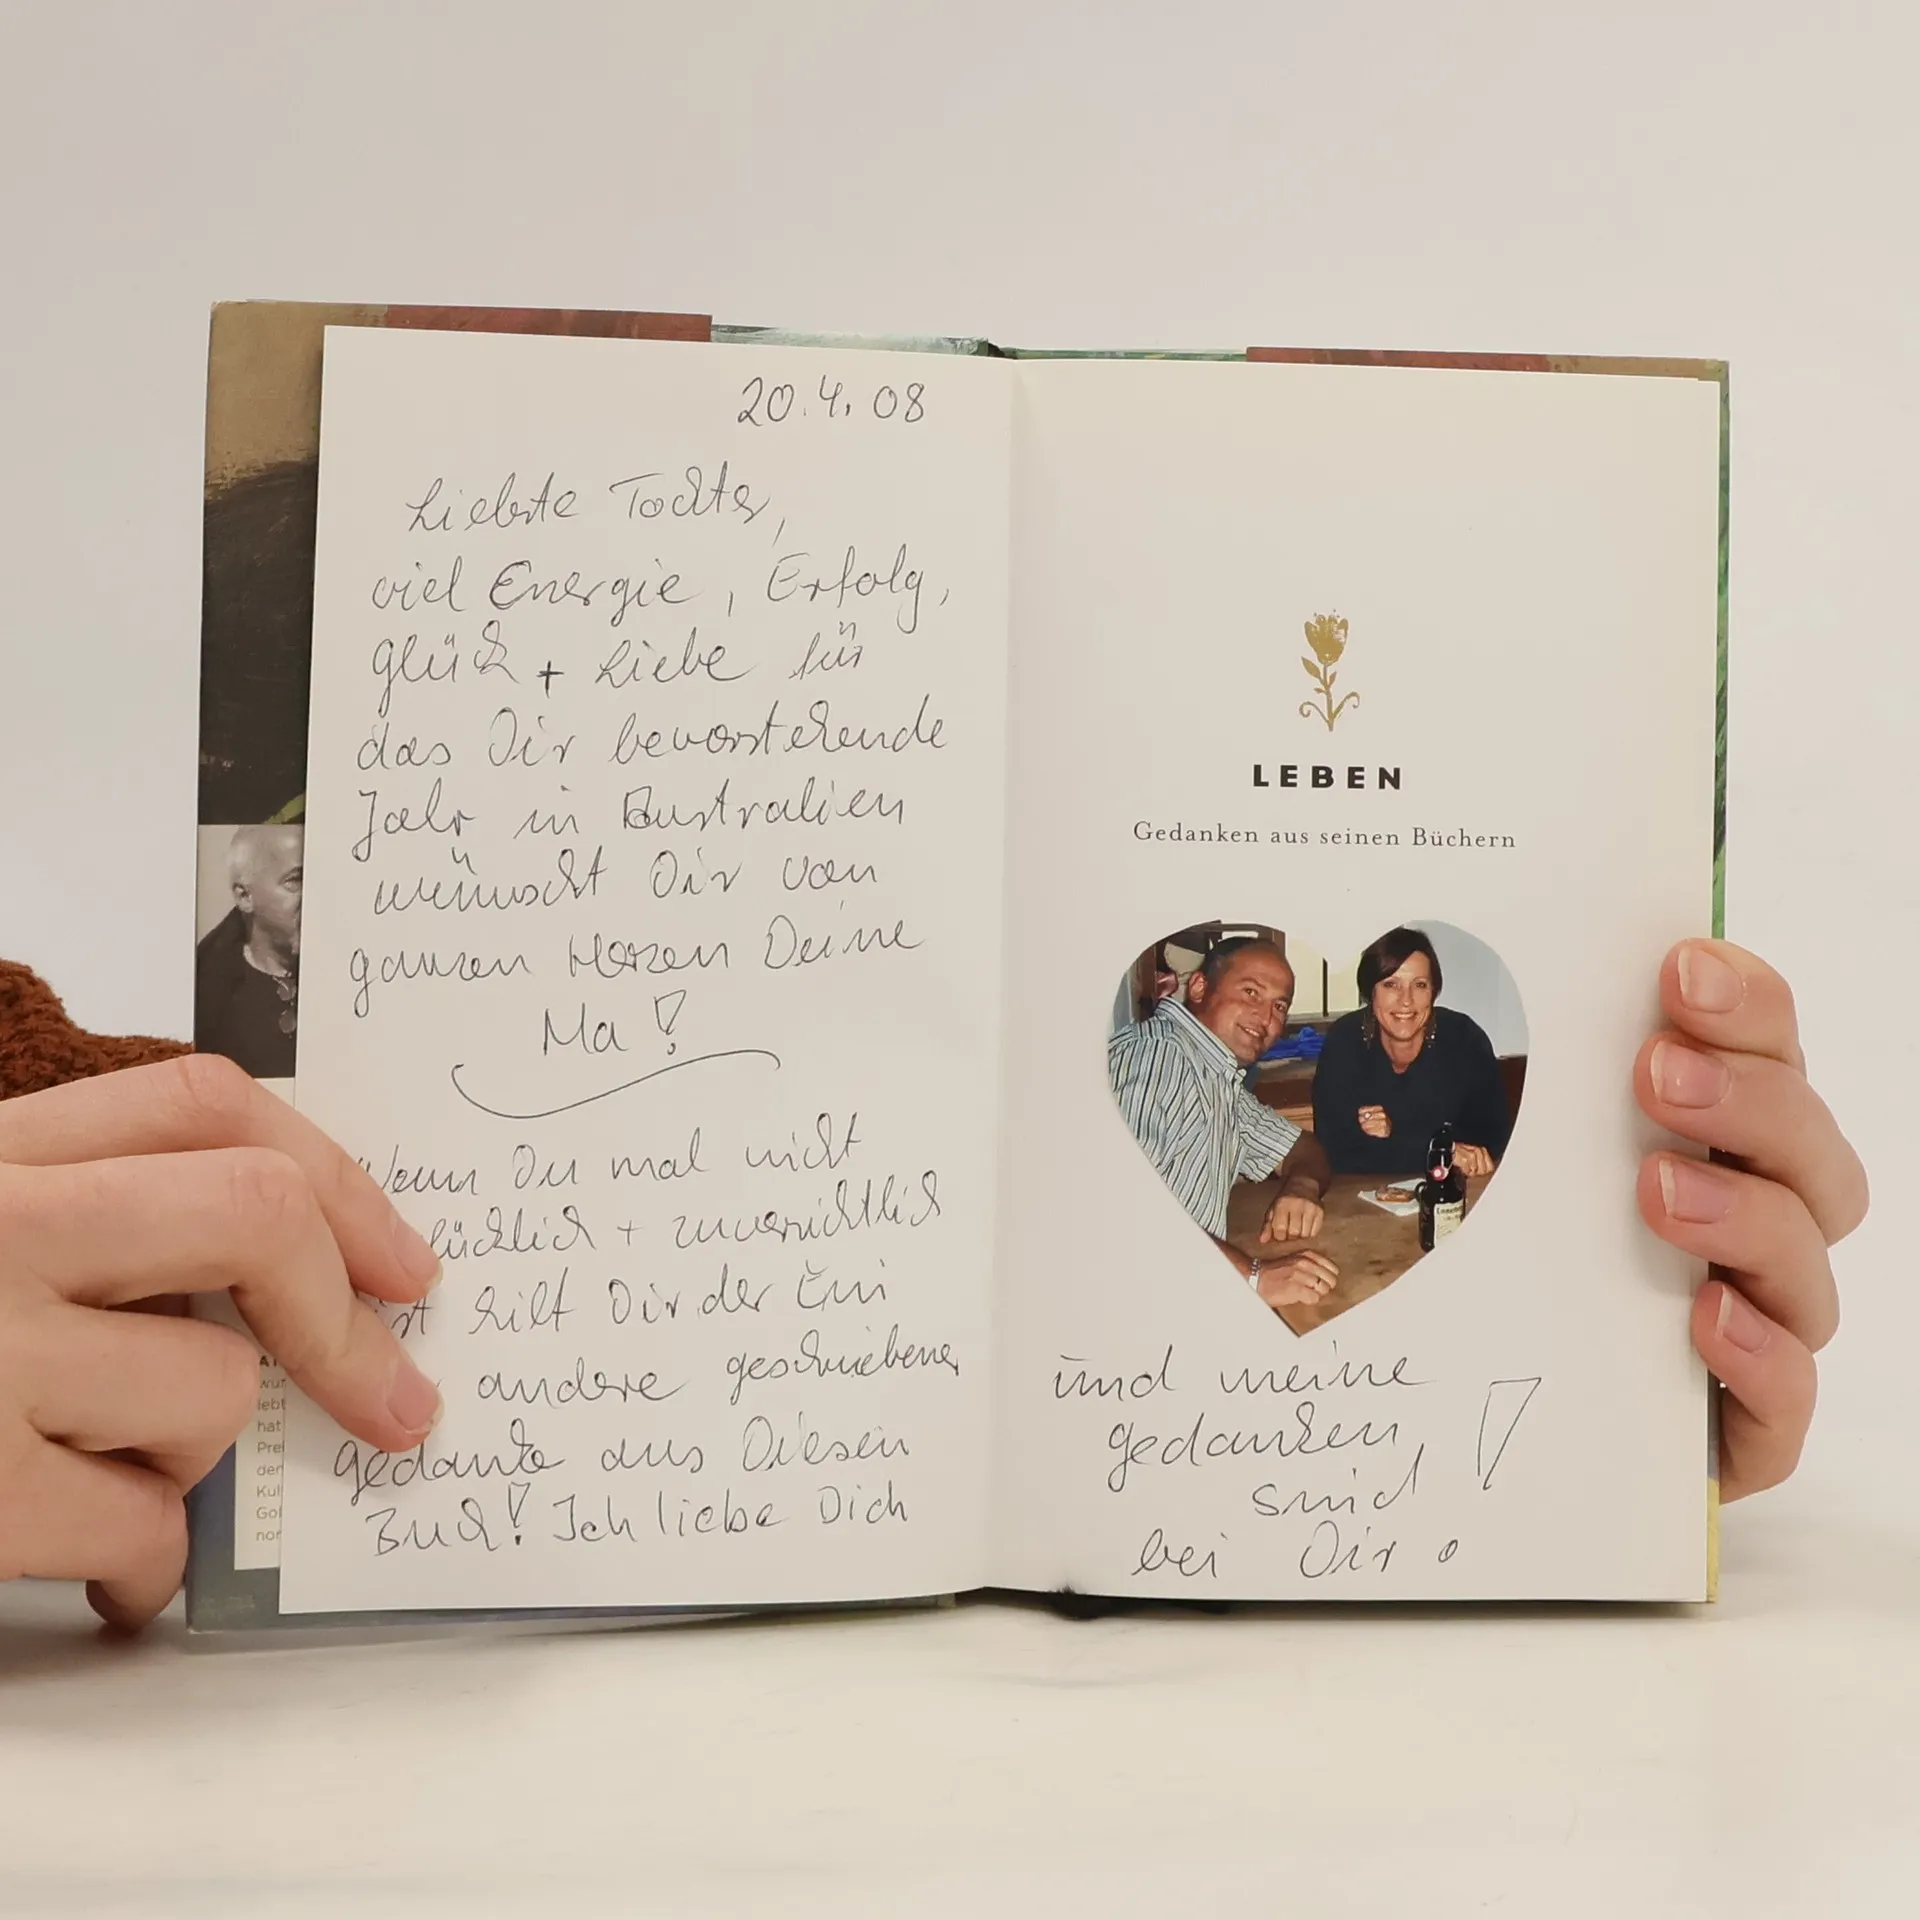 20.4.08
Liebste Tochter,
viel Energie, Erfolg,
Glück + Liebe für
das Dir bevorstehende
Jahr in Australien
wünscht Dir von
ganzen Herzen Deine
Ma!
Wenn Du mal nicht
glücklich + zuversichtlich
ist hilft Dir der Ein
andere geschriebene
Gedanke aus Diesen
Buch! Ich liebe Dich
LEBEN
Gedanken aus seinen Büchern
und meine
Gedanken,
sind
bei Dir!
wur
lebt
hat
Prei
der
Kul
Gol
nor